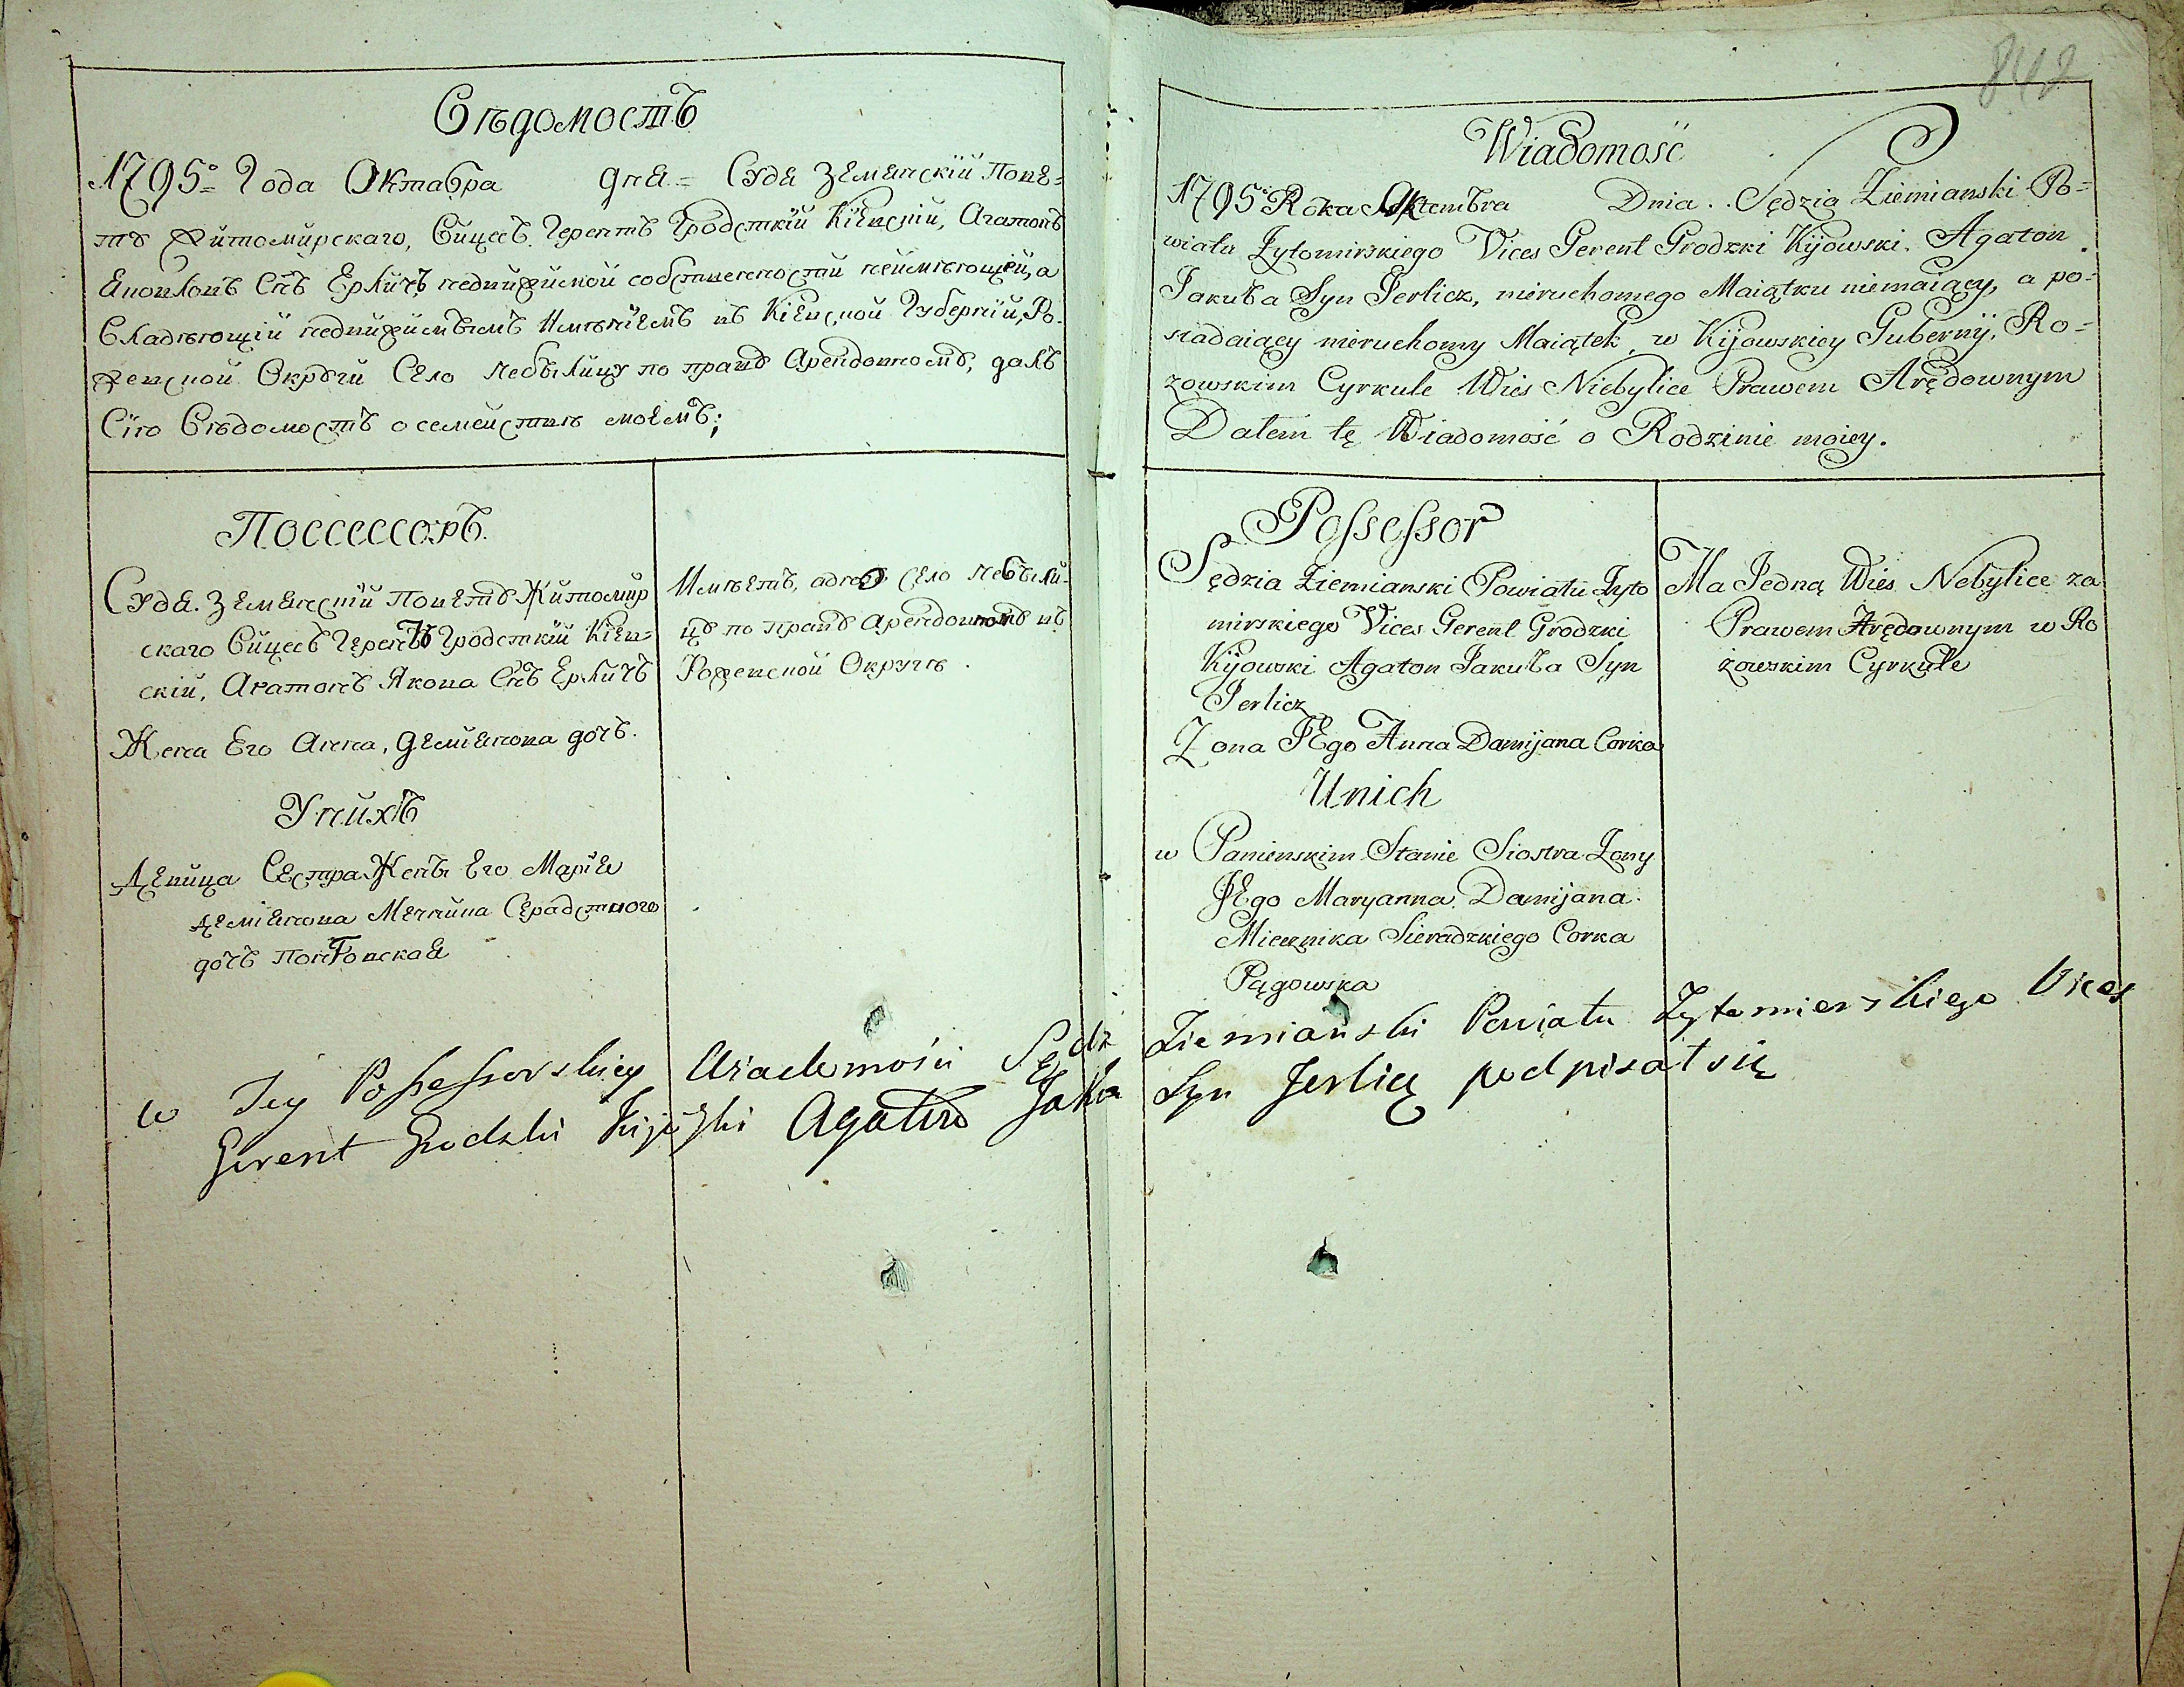 Вѣдомость
1795º Года Октабра дня = Судя Земянскій Пове=
ту Житомирскаго, Вицесъ Герентъ Гродсткій Кіевскій, Агатонъ
Яковловъ Снъ Ерличъ недвижимой собственности неимѣющей, а
Владѣющій недвижимымъ Имѣніемъ въ Кіевской Губерніи, Ро-
жевской Округи Село Небылицу по праву Арендовному, далъ
Сію Вѣдомость о семействѣ моемъ;
Поссессоръ.
Судя. Земянскій Повету Житомир
скаго Вицесъ Герентъ Гродсткій Кіев=
скій, Агатонъ Якова Снъ Ерличъ
Жена Его Анна, Деміянова дочь.
Унихъ
Девица Сестра Жены Его Марія
Деміянова Мечника Серадсткого
дочь Понговская
Имѣетъ, адно село Небыли-
цу по праву Арендовному въ
Рожевской Округѣ.
842
Wiadomość
1795º Roka Oktembra Dnia.. Sędzia Ziemianski Po=
wiatu Zytomirskiego Vices Gerent Grodzki Kijowski. Agaton
Jakuba Syn Jerlicz, nieruchomego Maiątku niemaiący, a po-
siadaiący nieruchomy Maiątek, w Kijowskiey Gubernij, Ro=
zowskim Cyrkule Wies Niebylice Prawem Arędownym
Datem tę Wiadomość o Rodzinie moiey.
Possessor
Sędzia Ziemianski Powiatu Zyto
mirskiego Vices Gerent Grodzki
Kijowski Agaton Jakuba Syn
Jerlicz
Zona JEgo Anna Damijana Corka
Unich
w Panienskim Stanie Siostra Zony
JEgo Maryanna Damijana
Miecznika Sieradzkiego Corka
Pągowska
Ma Jedną Wies Nebylice za
Prawem Arędownym w Ro
żowskim Cyrkule
w Tey Possessorskiey Wiadomości Sędz Ziemiański Powiatu Zytomierskiego Vices
Gerent Grodzki Kijowski Agaton Jaka Syn Jerlicz podpisał się